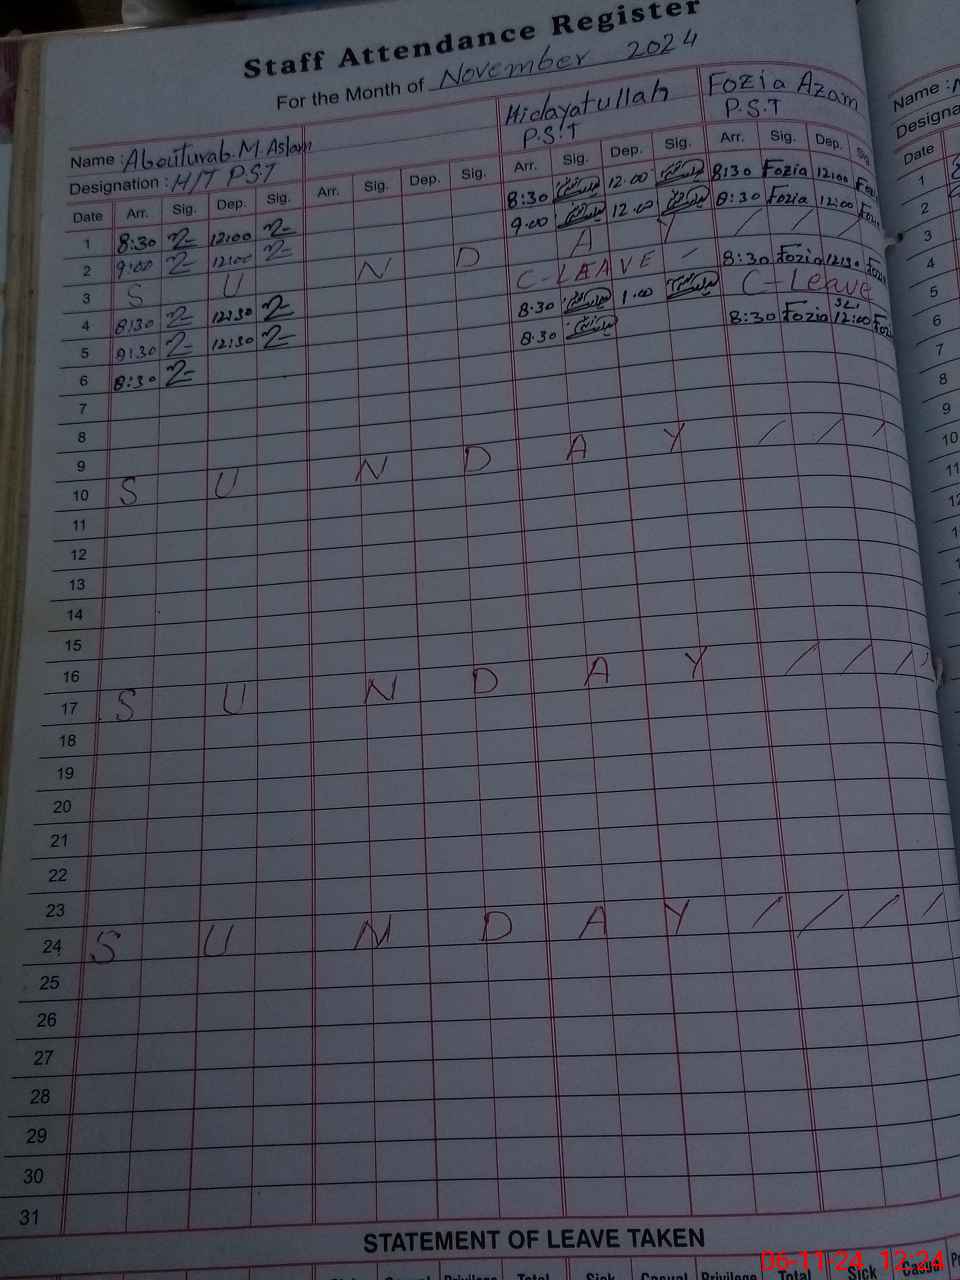 Staff Attendance Register
For the Month of November 2024
Name : Abouturab.M.Aslam Hidayatullah Fozia Azam Name :
Designation : H/T PST P.S.T P.S.T Designa
Date Arr. Sig. Dep. Sig. Arr. Sig. Dep. Sig. Arr. Sig. Dep. Sig. Arr. Sig. Dep. Sig. Date
1 8:30 12:00 8:30 12.00 8:30 Fozia 12:00 1
2 9:00 12:00 9.00 12.00 8:30 Fozia 12:00 2
3 S U N D A Y / / / 3
4 8:30 12:30 C-LEAVE - 8:30 Fozia 12:30 4
5 9:30 12:30 8:30 1.00 C-Leave 5
6 8:30 8.30 8:30 Fozia 12:00 6
7 7
8 8
9 9
10 S U N D A Y / / / 10
11 11
12 12
13
14
15
16
17 S U N D A Y / / / /
18
19
20
21
22
23
24 S U N D A Y / / / /
25
26
27
28
29
30
31
STATEMENT OF LEAVE TAKEN
Casual Privilege Total Sick Casual Privilege Total Sick Casual
06-11-24 12:24